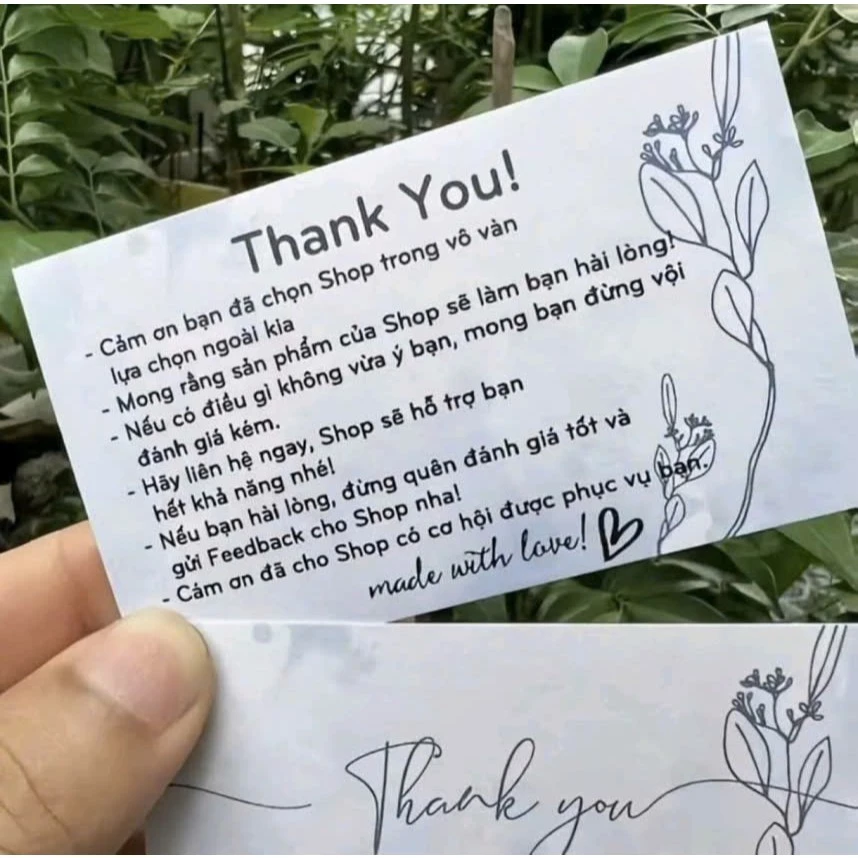 Thank You!
- Cảm ơn bạn đã chọn Shop trong vô vàn
lựa chọn ngoài kia
- Mong rằng sản phẩm của Shop sẽ làm bạn hài lòng!
- Nếu có điều gì không vừa ý bạn, mong bạn đừng vội
đánh giá kém.
- Hãy liên hệ ngay, Shop sẽ hỗ trợ bạn
hết khả năng nhé!
- Nếu bạn hài lòng, đừng quên đánh giá tốt và
gửi Feedback cho Shop nha!
- Cảm ơn đã cho Shop có cơ hội được phục vụ bạn.
made with love!
Thank you